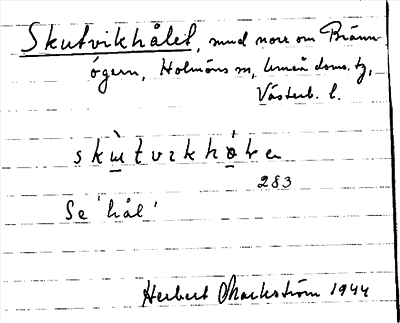 Skutvikhålet, sund norr om Bränn-
ögern, Holmöns sn, Umeå doms. tg,
Västerb. l.
skùtvikhòle
283
Se 'hål'
Herbert Markström 1944